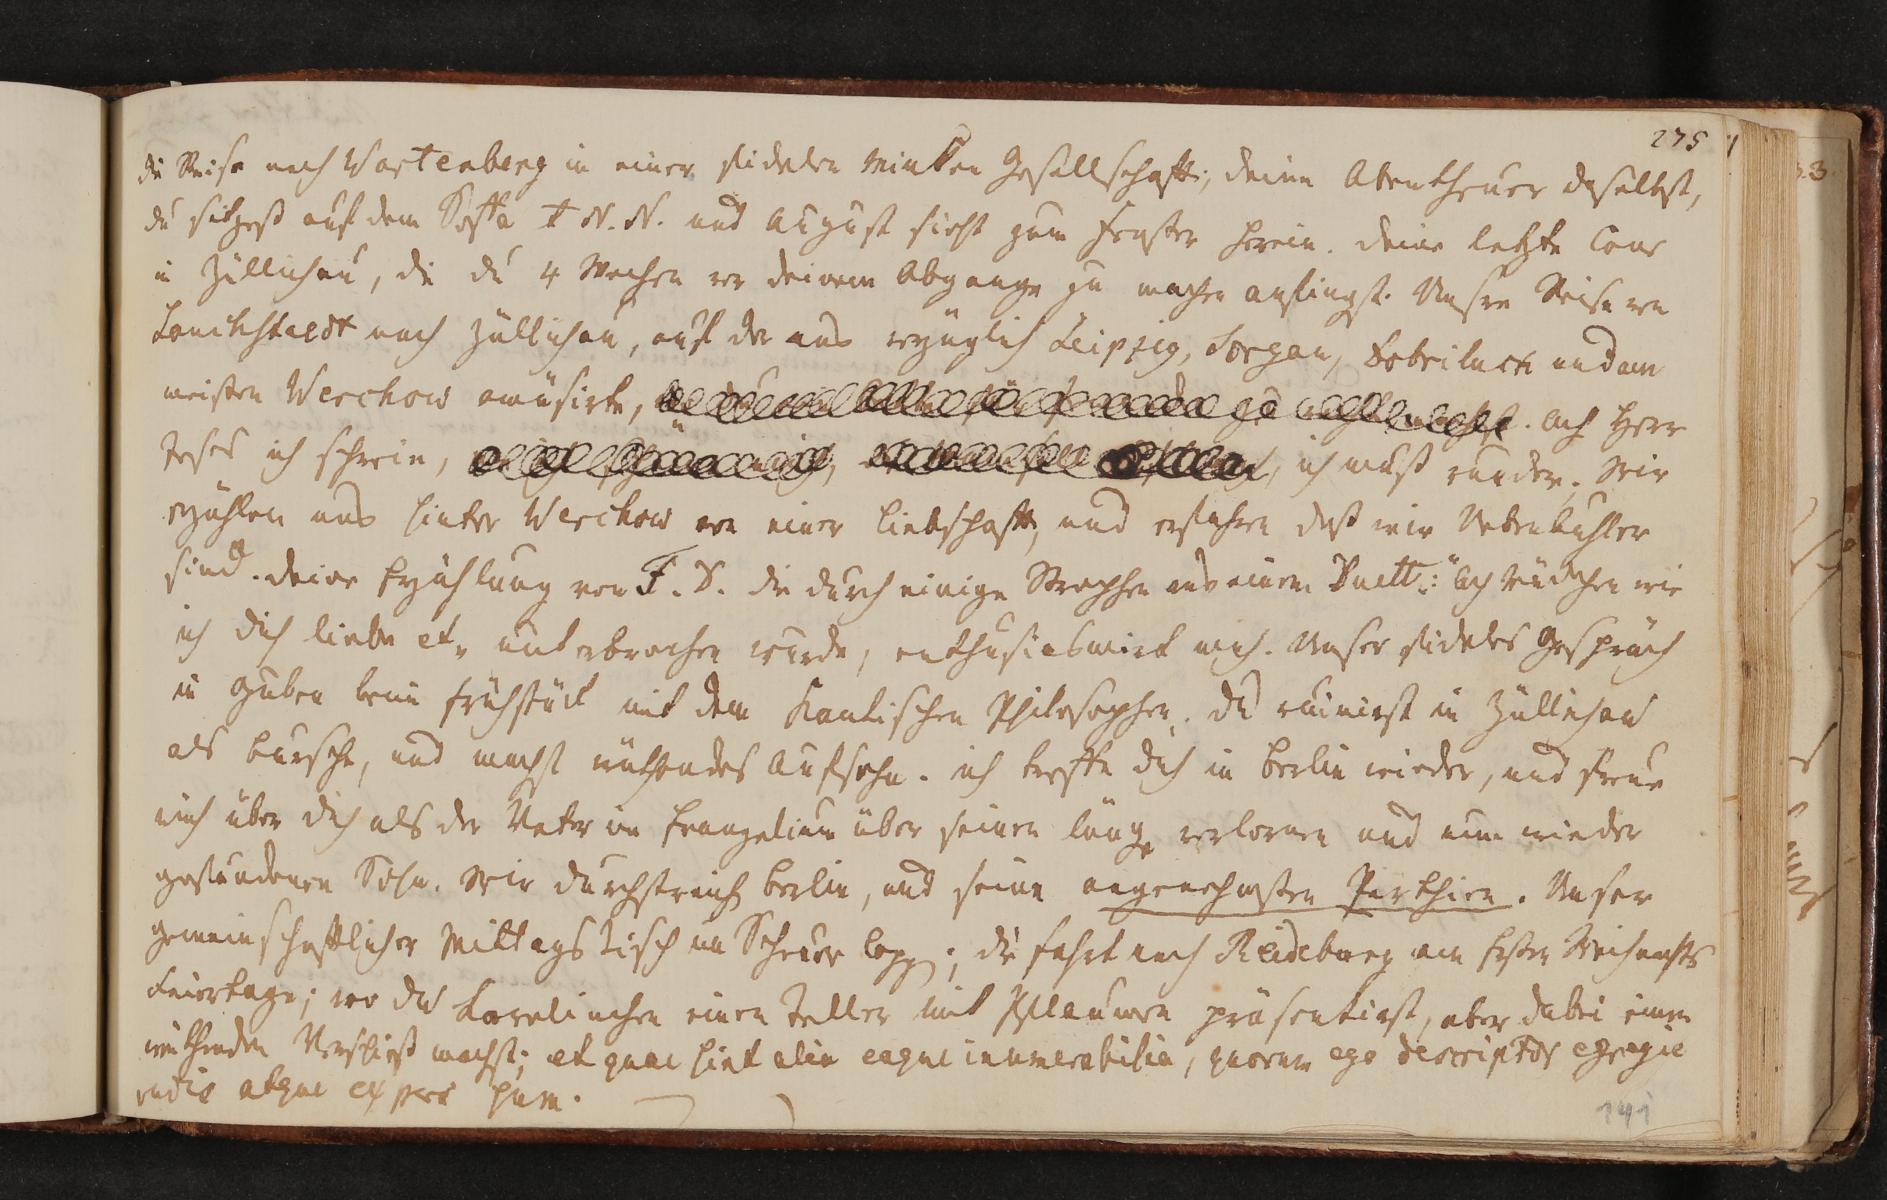 275
die Reise nach Wartenberg in einer fidelen Gesellschaft; deine Abentheuer daselbst,
du sitzest auf dem Soffa † N. N. und August sieht zum Fenster herein. deine letzte Cour
in Züllichau, die du 4 Wochen vor deinem Abgange zu machen anfingst. Unsre Reise von
Lauchstaedt nach Züllichau, auf der uns vorzüglich Leipzig, Torgau, Dobriluck und am
meisten Werchow amüsirte, Ach Herr
Jeses ich schrein, ich muß runder. Wir
erzählen uns hinter Werchow von einer Liebschaft, und erfahren daß wir Nebenbuhler
sind. deine Erzählung von F. S. die durch einige Strophen aus einem Duett: "Ach Mädchen wie
ich dich liebe etc unterbrochen wurde, enthusiasmirt mich. Unser fideles Gespräch
in Guben beim Frühstück mit dem Kantischen Philosophen. du ruinirst in Züllichau
als Bursche, und machst wüthendes Aufsehn. ich treffe dich in Berlin wieder, und freue
mich über dich als der Vater im Evangelium über seinen längst verlornen und nun wieder
gefundenen Sohn. Wir durchstreich Berlin, und seine angenehmsten Parthien. Unser
gemeinschaftlicher Mittags Tisch im; die Fahrt nach Reideburg am ersten Weihnachts
Feiertage; wo du Karolinchen einen Teller mit Pflaumen präsentirst, aber dabei einen
wüthenden Verschieß machst; et quae sint alia eaque inumerabilia, quorum ego descriptor egregie
rudis atque expers sum.
141